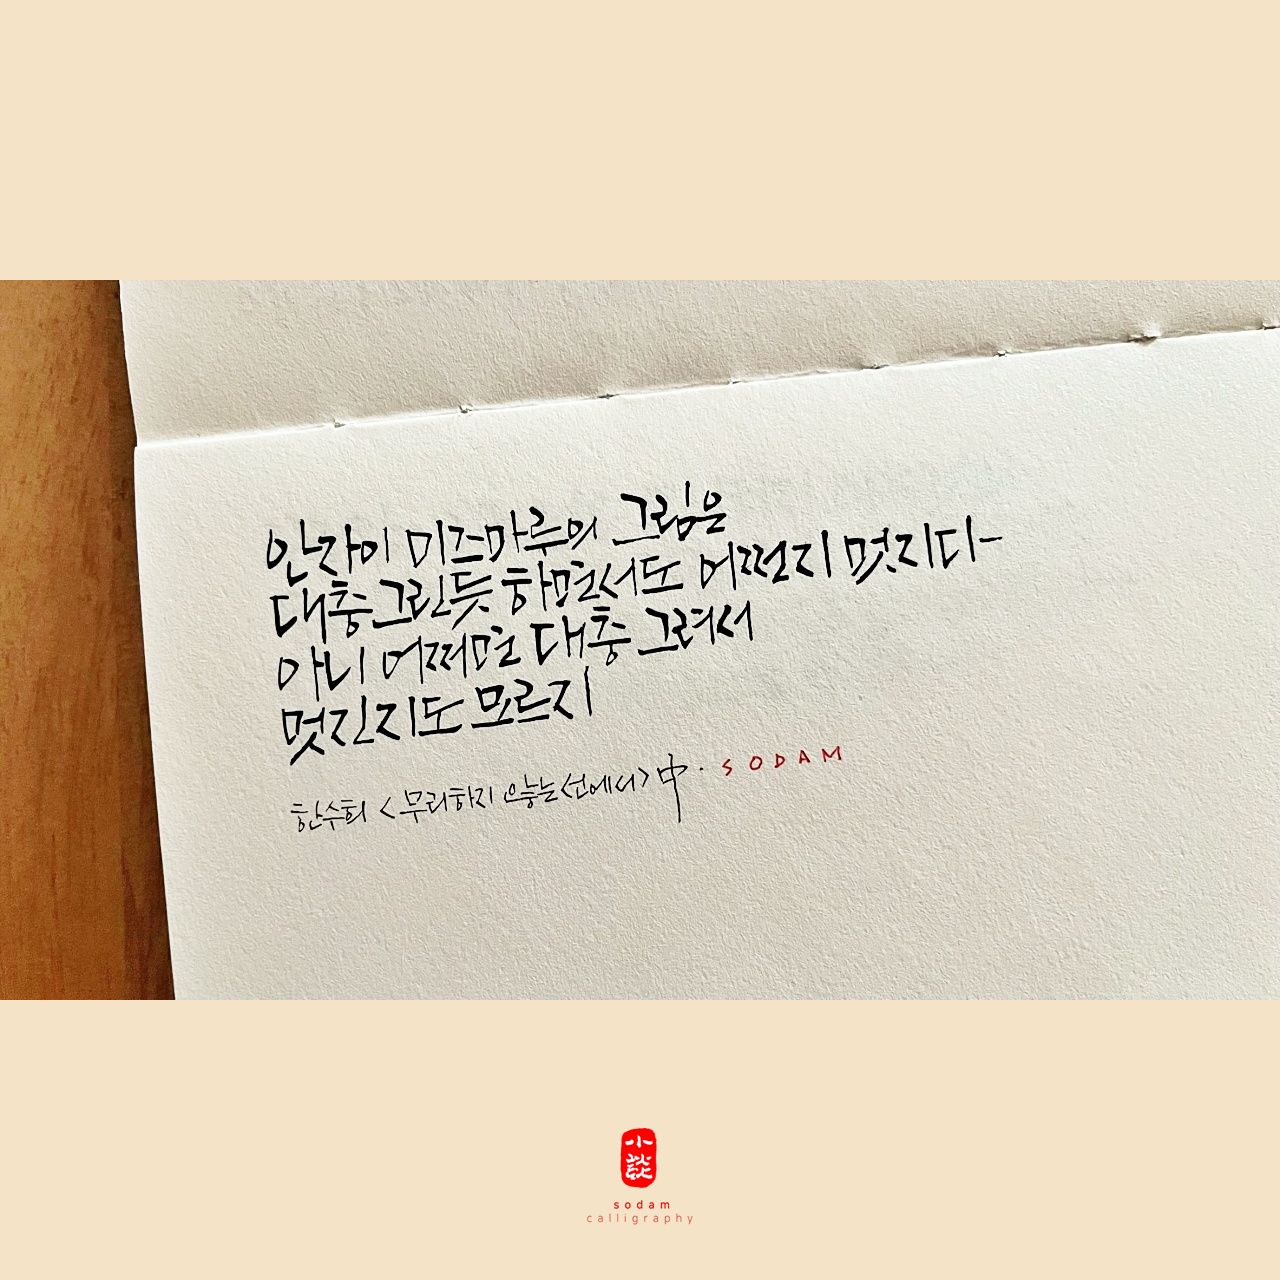 안자이 미즈마루의 그림은
대충 그린듯 하면서도 어쩐지 멋지다-
아니 어쩌면 대충 그려서
멋진지도 모르지
한수희 <무리하지 않는 선에서> 中. SODAM
小談
sodam
calligraphy